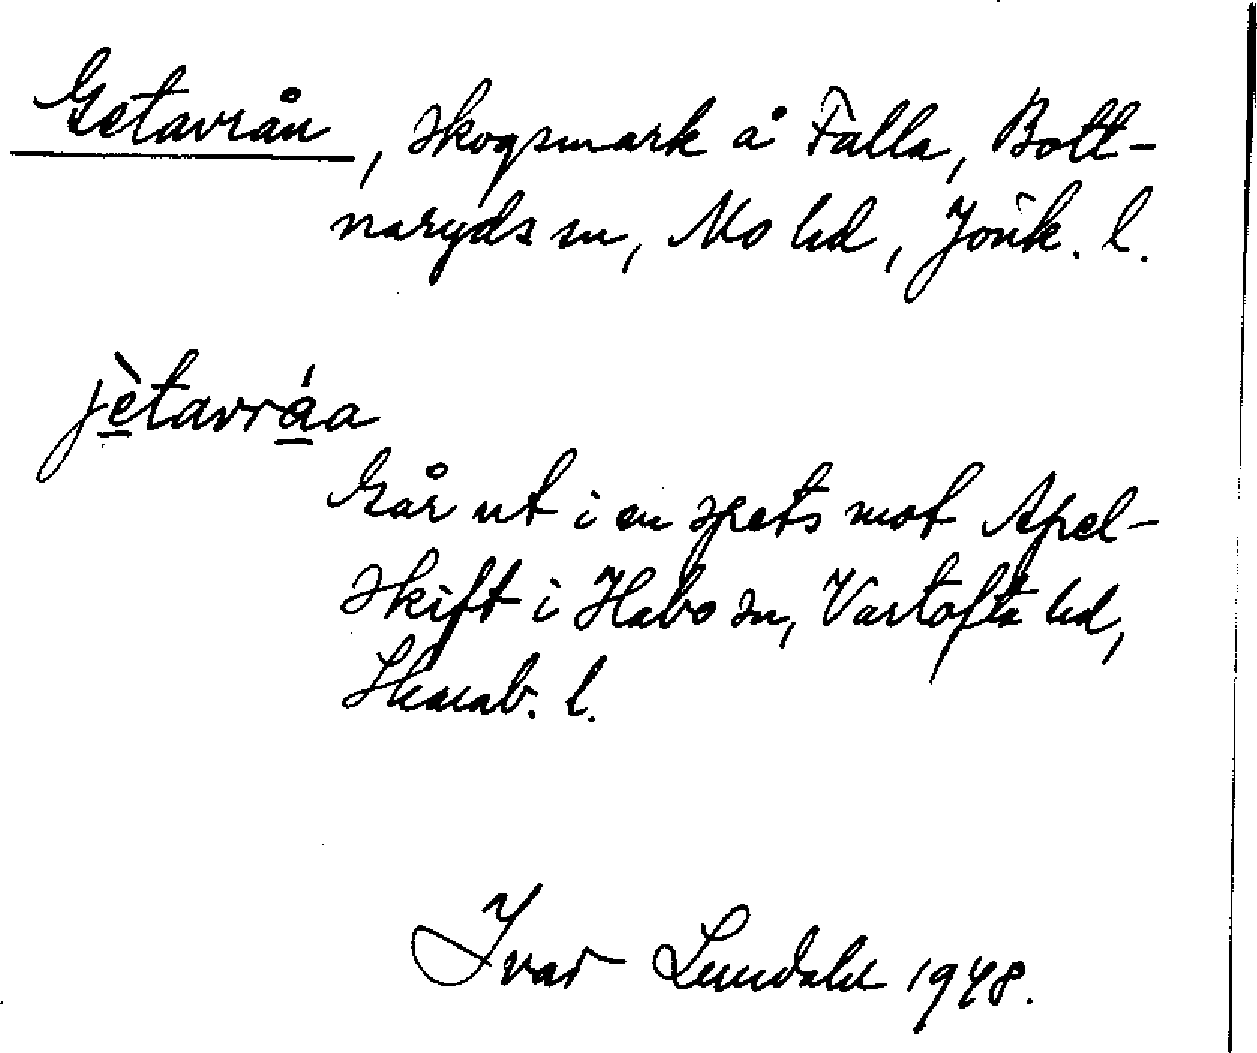 Getavrån, skogsmark å Falla, Bott-
naryds sn, Mo hd, Jönk. l.
jètavráa
Går ut i en spets mot Apel-
skift i Habo sn, Vartofta hd,
Skarab. l.
Ivar Lundahl 1948.